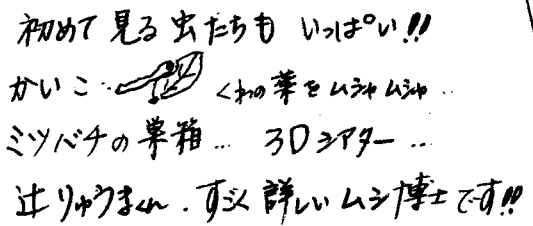 初めて見る虫たちも いっぱい!!
かいこ… くわの葉をムシャムシャ…
ミツバチの巣箱… 3Dシアター…
辻りゅうまくん.すごく詳しいムシ博士です!!